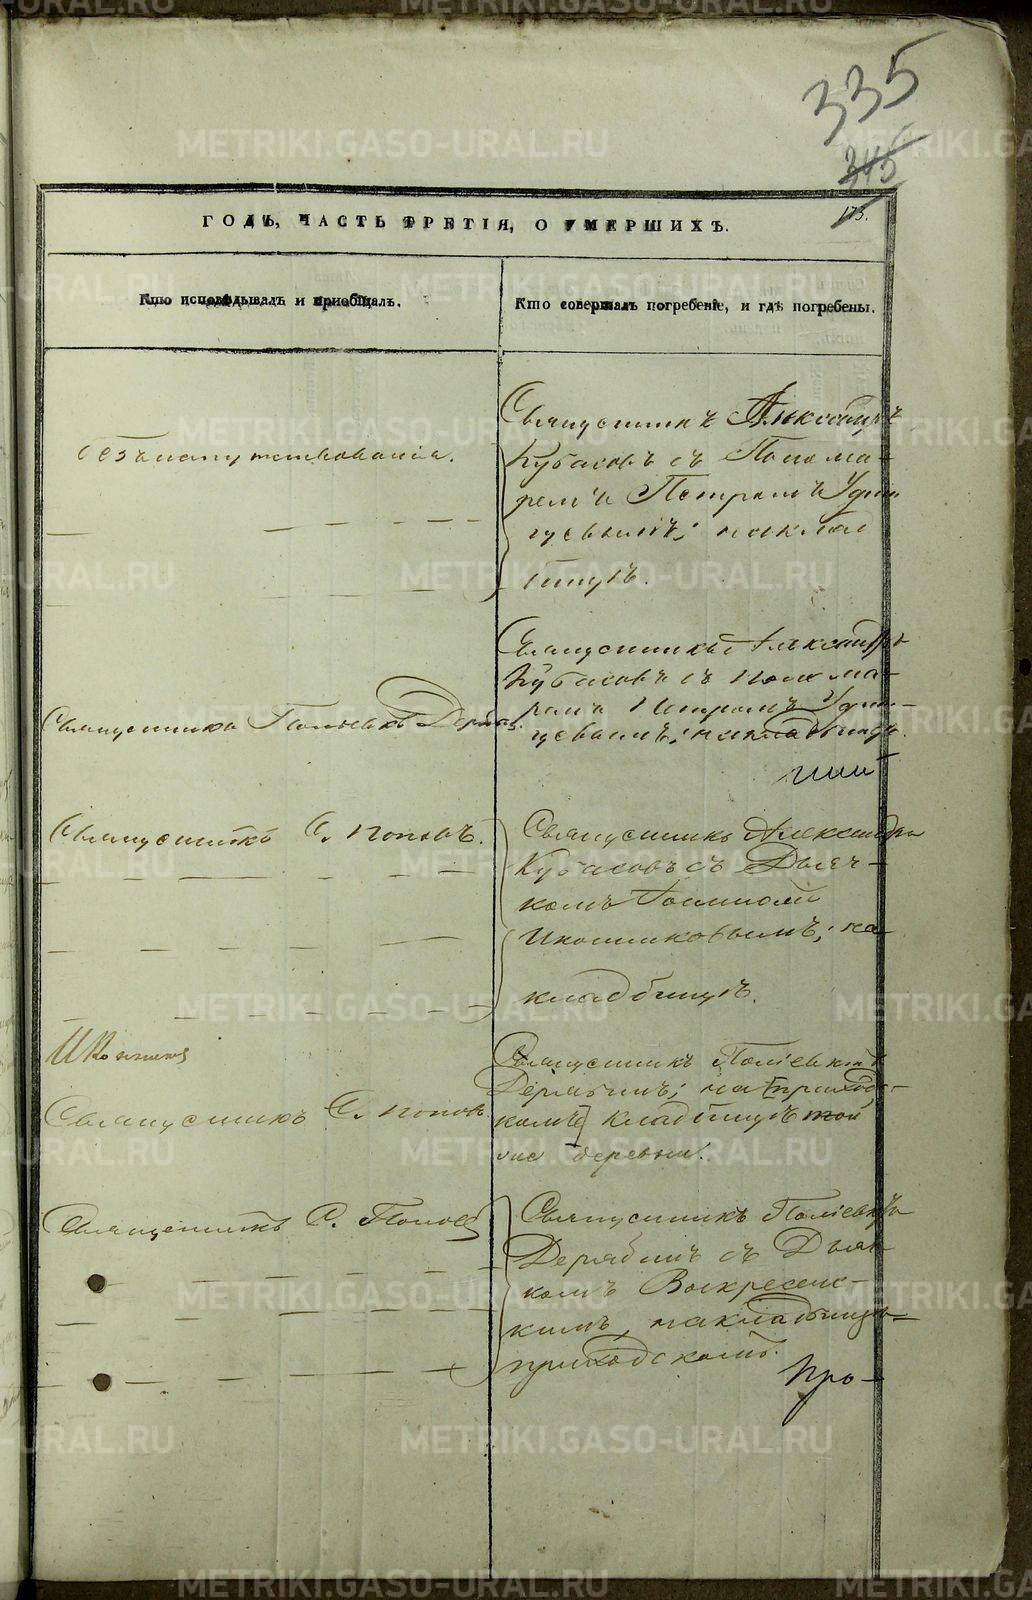 335
345
173.
ГОДЪ, ЧАСТЬ ТРЕТІЯ, О УМЕРШИХЪ.
Кто исповѣдывалъ и пріобщалъ.
Кто совершалъ погребеніе, и гдѣ погребены.
безъ напутствованія.
Священникъ Александръ
Кубасовъ съ Понома-
ремъ Петромъ Удин-
цевымъ; на клад
бищѣ.
Священника Поліевкта Деряб.
Священникъ Александръ
Кубасовъ съ Понома-
ремъ Петромъ Удин-
цевымъ; на кладбищѣ.
Священникъ С. Поповъ.
Священникъ Александръ
Кубасовъ съ Дьяч-
комъ
Иконниковымъ; на
кладбищѣ.
Священникъ С. Поповъ
Священникъ Поліевктъ
Дерябинъ; на приход-
комъ кладбищѣ той
же деревни.
Священникъ С. Поповъ
Священникъ Поліевктъ
Дерябинъ съ Дьяч-
комъ Воскресенс-
кимъ, на кладбищѣ
приходскомъ.
Про-
METRIKI.GASO-URAL.RU